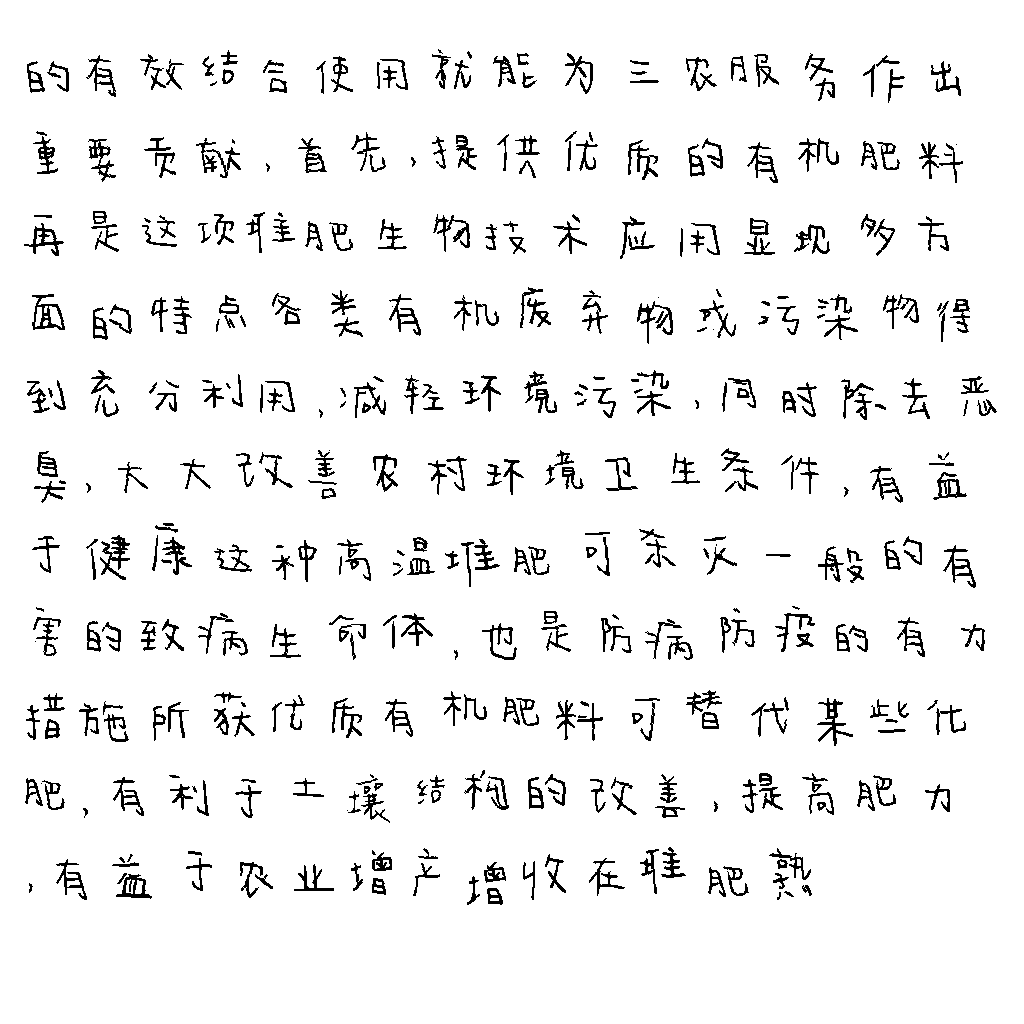 的有效结合使用就能为三农服务作出
重要贡献,首先,提供优质的有机肥料
再是这项堆肥生物技术应用显现多方
面的特点各类有机废弃物或污染物得
到充分利用,减轻环境污染,同时除去恶
臭,大大改善农村环境卫生条件,有益
于健康这种高温堆肥可杀灭一般的有
害的致病生命体,也是防病防疫的有力
措施所获优质有机肥料可替代某些化
肥,有利于土壤结构的改善,提高肥力
,有益于农业增产增收在堆肥熟